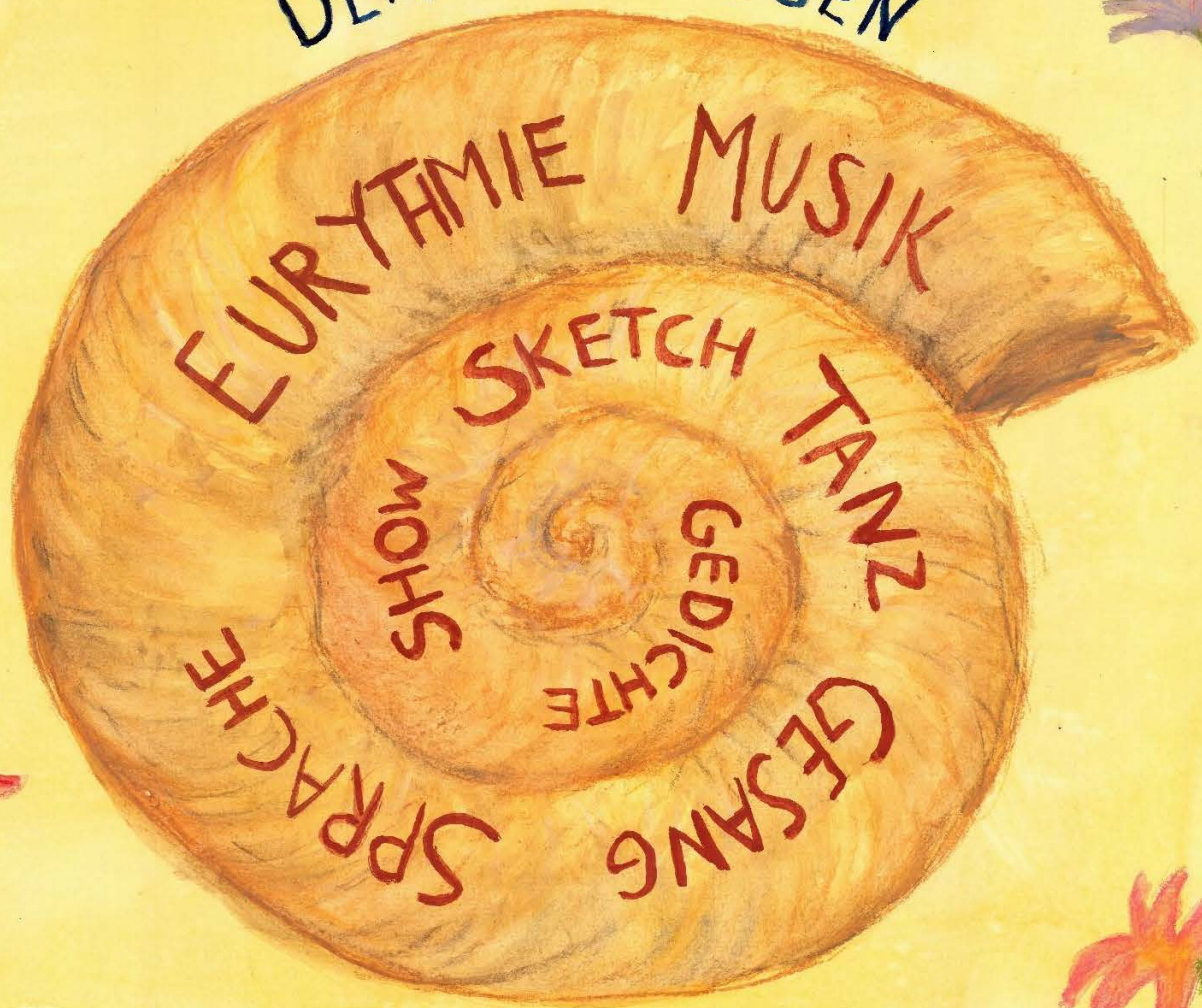 EURYTHMIE MUSIK
TANZ
GESANG
SPRACHE
SHOW
SKETCH
GEDICHTE